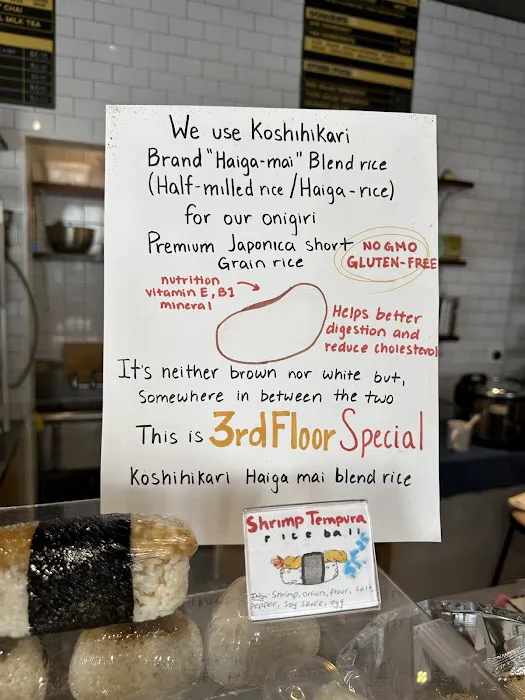 CHAI
MILK TEA
We use Koshihikari
Brand "Haiga-mai" Blend rice
(Half-milled rice / Haiga-rice)
for our onigiri
Premium Japonica short
Grain rice
NO GMO
GLUTEN-FREE
nutrition
vitamin E, B1
mineral
Helps better
digestion and
reduce cholesterol
It's neither brown nor white but,
Somewhere in between the two
This is 3rd Floor Special
Koshihikari Haiga mai blend rice
Shrimp Tempura
rice ball
Shrimp, onion, flour, salt,
pepper, soy sauce, egg